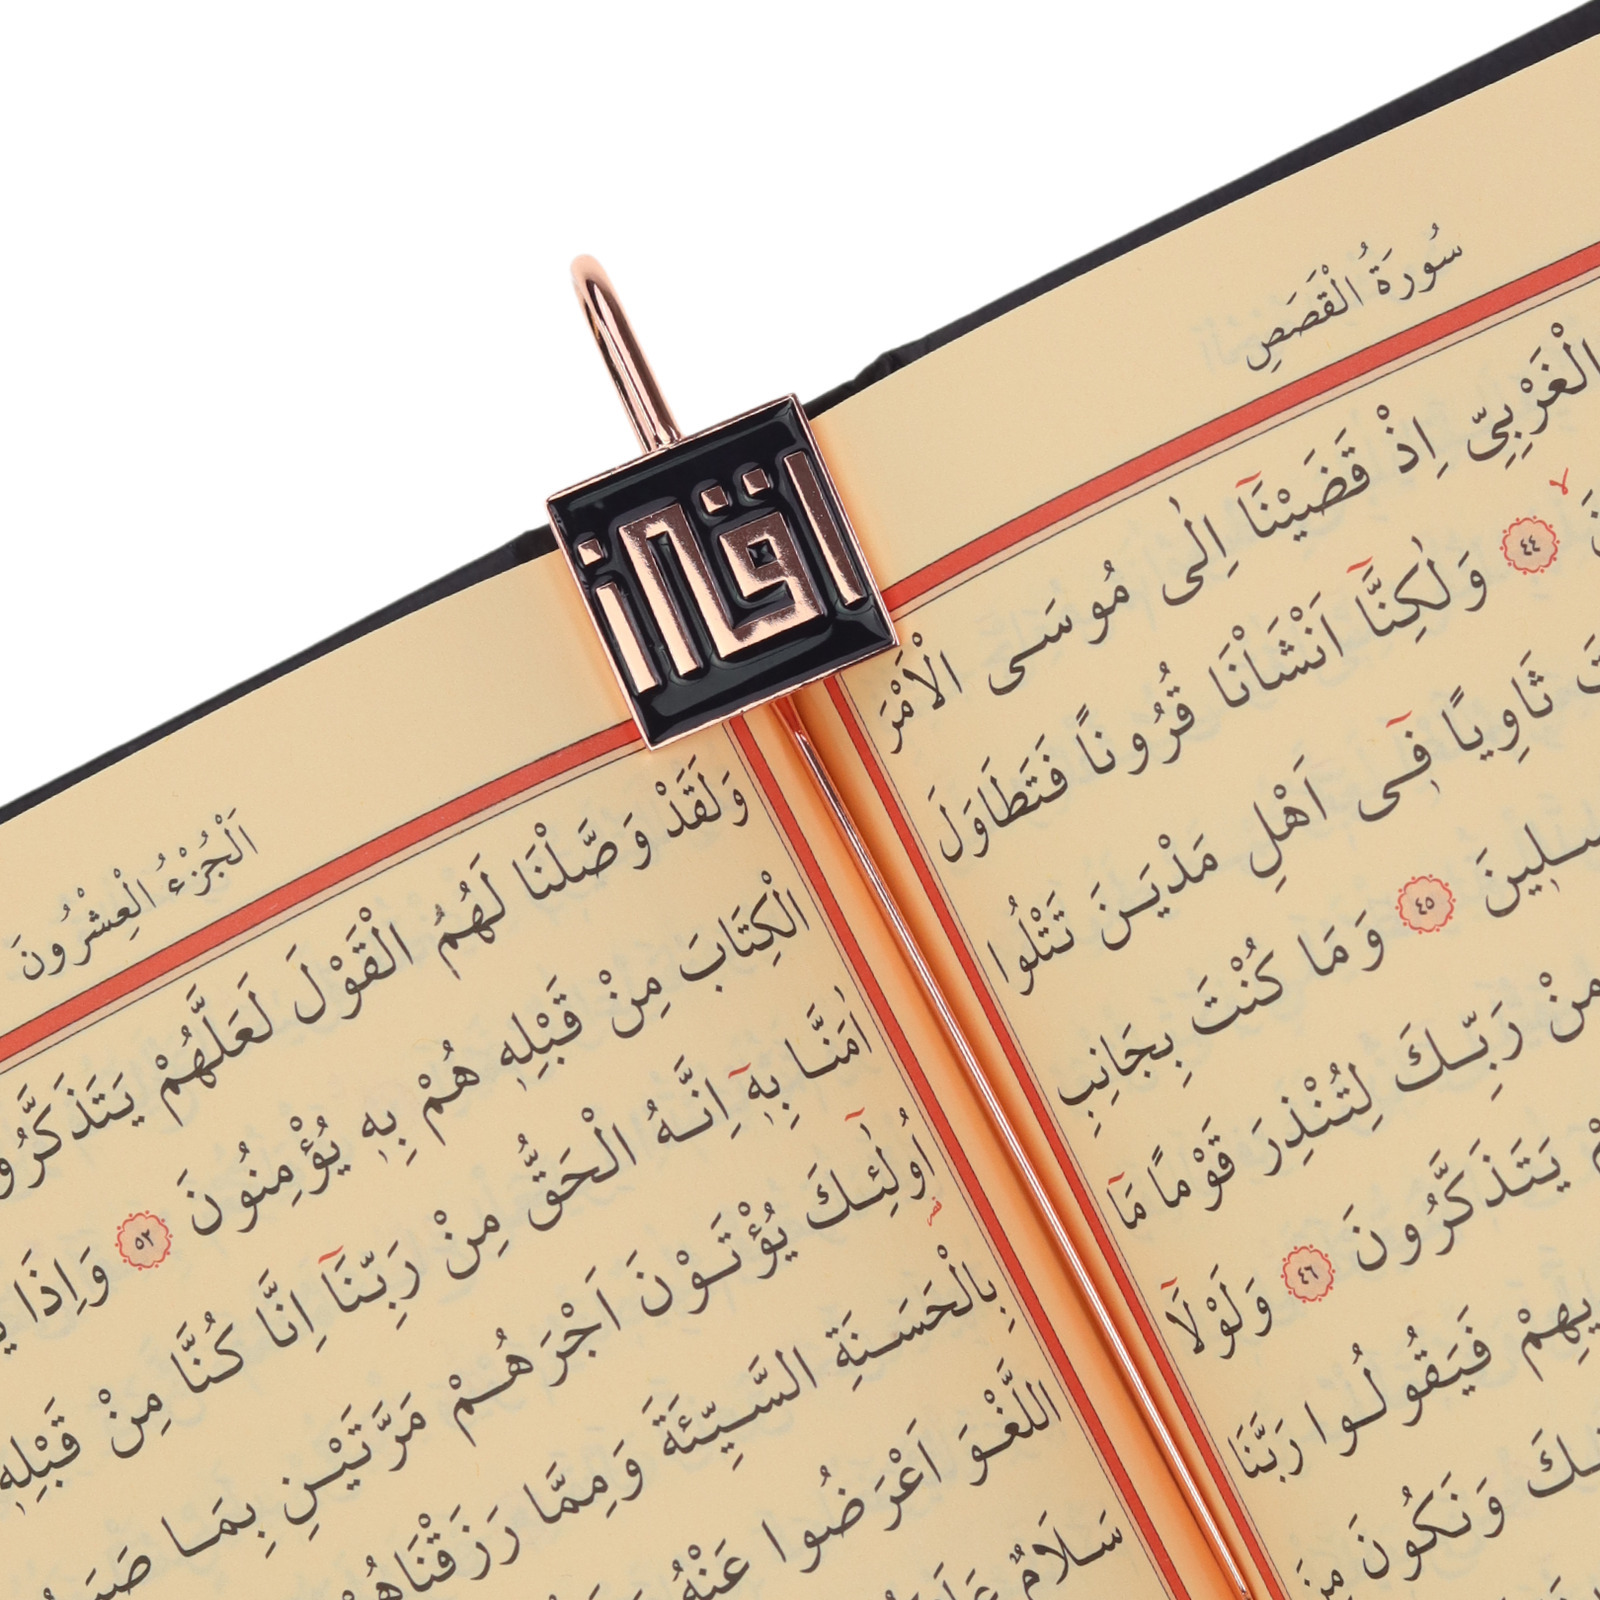 اقرأ
سُورَةُ الْقَصَصِ
الْغَرْبِيِّ اِذْ قَضَيْنَٓا اِلٰى مُوسَى الْاَمْرَ
٤٤ وَلٰكِنَّٓا اَنْشَأْنَا قُرُونًا فَتَطَاوَلَ
ثَاوِيًا فٖٓى اَهْلِ مَدْيَنَ تَتْلُوا
٤٥ وَمَا كُنْتَ بِجَانِبِ
مِنْ رَبِّكَ لِتُنْذِرَ قَوْمًا مَٓا
يَتَذَكَّرُونَ ٤٦ وَلَوْلَٓا
فَيَقُولُوا رَبَّنَا
وَنَكُونَ مِنَ
اَلْجُزْءُ الْعِشْرُونَ
وَلَقَدْ وَصَّلْنَا لَهُمُ الْقَوْلَ لَعَلَّهُمْ يَتَذَكَّرُونَ
الْكِتَابَ مِنْ قَبْلِهٖ هُمْ بِهٖ يُؤْمِنُونَ ٥٢ وَاِذَا
اٰمَنَّا بِهٖٓ اِنَّهُ الْحَقُّ مِنْ رَبِّنَٓا اِنَّا كُنَّا مِنْ قَبْلِهٖ
اُو۬لٰٓئِكَ يُؤْتَوْنَ اَجْرَهُمْ مَرَّتَيْنِ بِمَا
بِالْحَسَنَةِ السَّيِّئَةَ وَمِمَّا رَزَقْنَاهُمْ
اللَّغْوَ اَعْرَضُوا عَنْهُ
سَلَامٌ